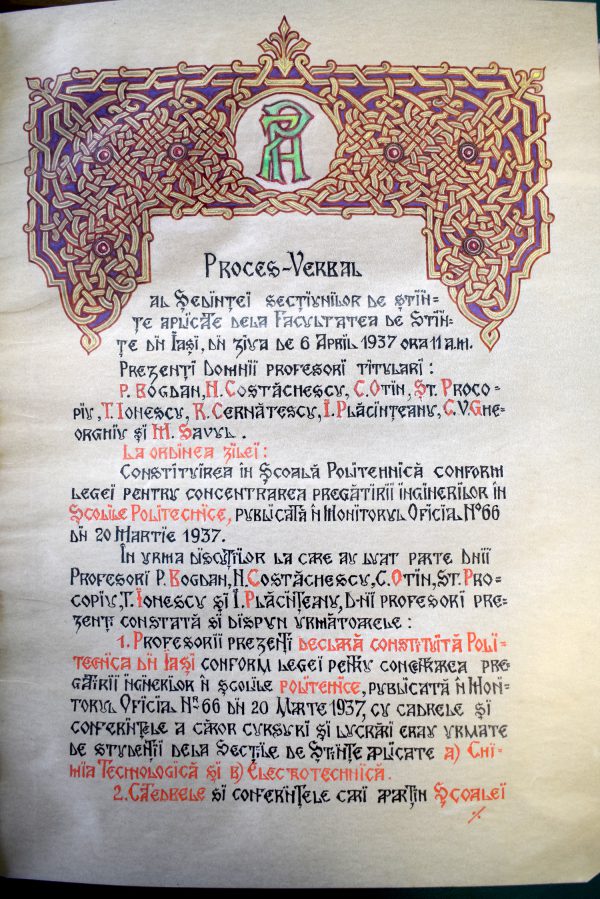 PA
PROCES-VERBAL
AL ȘEDINȚEI SECȚIUNILOR DE ȘTIIN-
ȚE APLICATE DELA FACULTATEA DE STIIN-
ȚE DIN IAȘI, DIN ZIUA DE 6 APRIL 1937 ORA 11 A.M.
PREZENȚI DOMNII PROFESORI TITULARI :
P. BOGDAN, N. COSTĂCHESCU, C. OTIN, ȘT. PROCO-
PIU, T. IONESCU, R. CERNĂTESCU, I. PLĂCINȚEANU, C.V. GHE-
ORGHIU ȘI M. SAVUL.
LA ORDINEA ZILEI :
CONSTITUIREA ÎN ȘCOALĂ POLITEHNICĂ CONFORM
LEGEI PENTRU CONCENTRAREA PREGĂTIRII INGINERILOR ÎN
ȘCOLILE POLITECNICE, PUBLICATĂ ÎN MONITORUL OFICIAL No 66
DIN 20 MARTIE 1937.
ÎN URMA DISCUȚIILOR LA CARE AU LUAT PARTE DNII
PROFESORI P. BOGDAN, N. COSTĂCHESCU, C. OTIN, ȘT. PRO-
COPIU, T. IONESCU ȘI I. PLĂCINȚEANU, D-NII PROFESORI PRE-
ZENȚI CONSTATĂ SI DISPUN URMĂTOARELE :
1. PROFESORII PREZENȚI DECLARĂ CONSTITUITĂ POLI-
TECNICA DIN IASI CONFORM LEGEI PENTRU CONCENTRAREA PRE-
GĂTIRII INGINERILOR ÎN ȘCOLILE POLITENICE, PUBLICATĂ ÎN MONI-
TORUL OFICIAL No. 66 DIN 20 MARTE 1937, CU CADRELE ȘI
CONFERINȚELE A CĂROR CURSURI ȘI LUCRĂRI ERAU URMATE
DE STUDENȚII DELA SECȚIILE DE ȘTIINȚE APLICATE A) CHI-
MIA TECHNOLOGICĂ ȘI B) ELECTROTECHNICĂ.
2. CATEDRELE SI CONFERINȚELE CARI APARȚIN ȘCOALEI